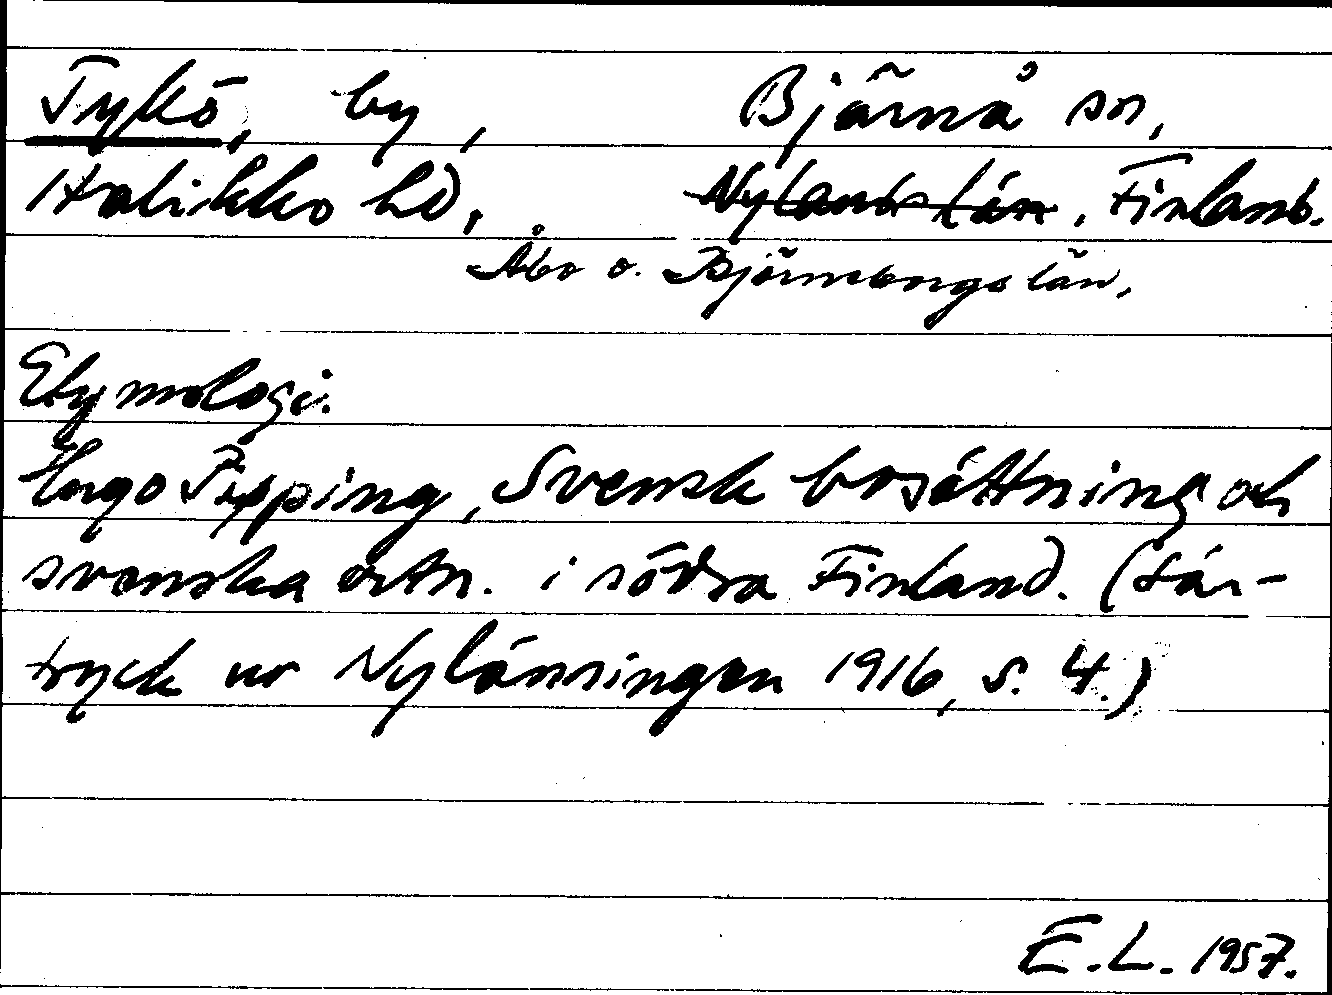 Tykö, by, Bjärnå sn,
Halikko hd, Nylands län, Finland.
Åbo o. Björneborgs län,
Etymologi.
Hugo Pipping, Svensk bosättning och
svenska ortn. i södra Finland. (Sär-
tryck ur Nylänningen 1916, s. 4.)
E.L. 1957.